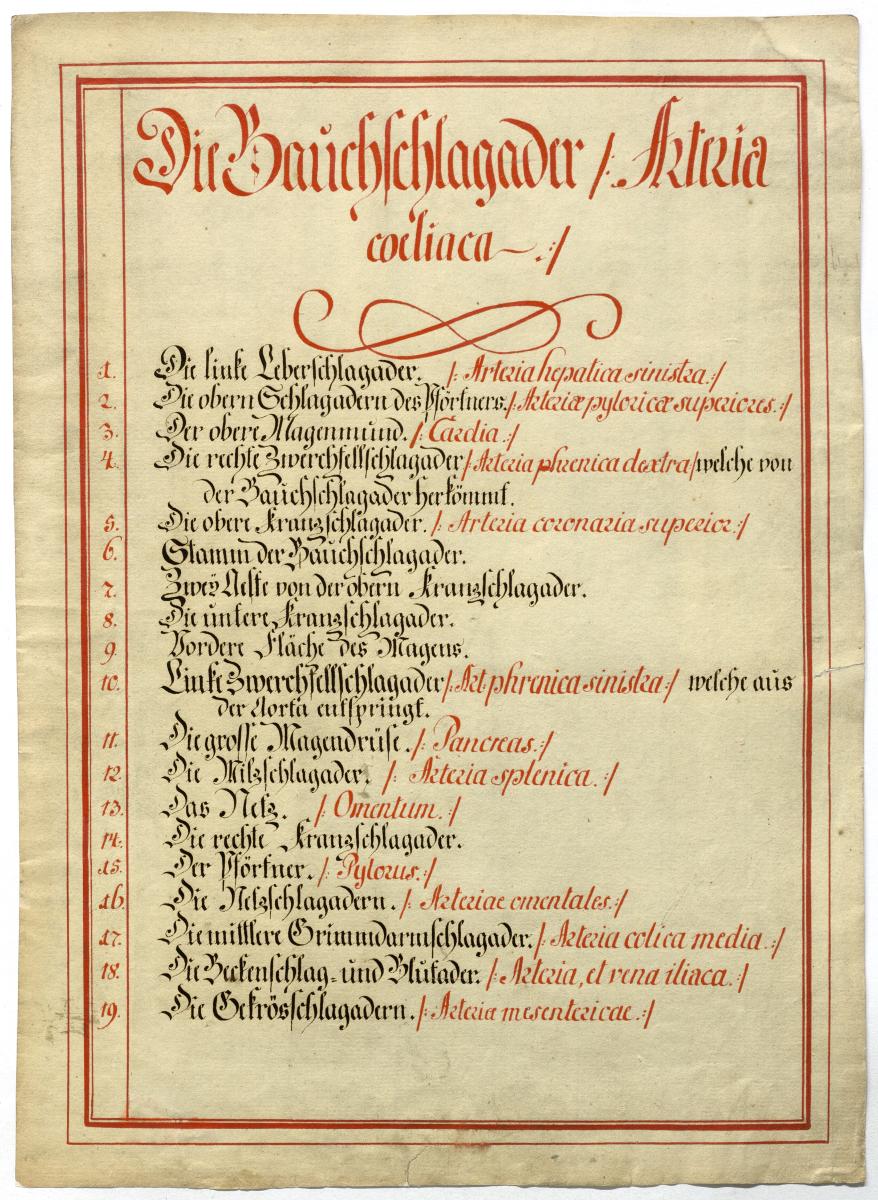 Die Bauchschlagader /: Arteria
coeliaca :/
1. Die linke Leberschlagader. /: Arteria hepatica sinistra :/
2. Die obern Schlagadern des Pförtners /: Arteriæ pyloricæ superiores :/
3. Der obere Magenmund. /: Cardia :/
4. Die rechte Zwerchfellschlagader /: Arteria phrenica dextra :/ welche von
der Bauchschlagader herkömmt.
5. Die obere Kranzschlagader. /: Arteria coronaria superior :/
6. Stamm der Bauchschlagader.
7. Zweÿ Aeste von der obern Kranzschlagader.
8. Die untere Kranzschlagader.
9. Vordere Fläche des Magens.
10. Linke Zwerchfellschlagader /: Art. phrenica sinistra :/ welche aus
der Aorta entspringt.
11. Die grosse Magendrüse. /: Pancreas. :/
12. Die Milzschlagader. /: Arteria splenica. :/
13. Das Netz. /: Omentum. :/
14. Die rechte Kranzschlagader.
15. Der Pförtner. /: Pylorus. :/
16. Die Netzschlagadern. /: Arteriae omentales. :/
17. Die mittlere Grimmdarmschlagader. /: Arteria colica media. :/
18. Die Beckenschlag- und Blutader. /: Arteria, et vena iliaca. :/
19. Die Gekrösschlagadern. /: Arteria mesentericae. :/